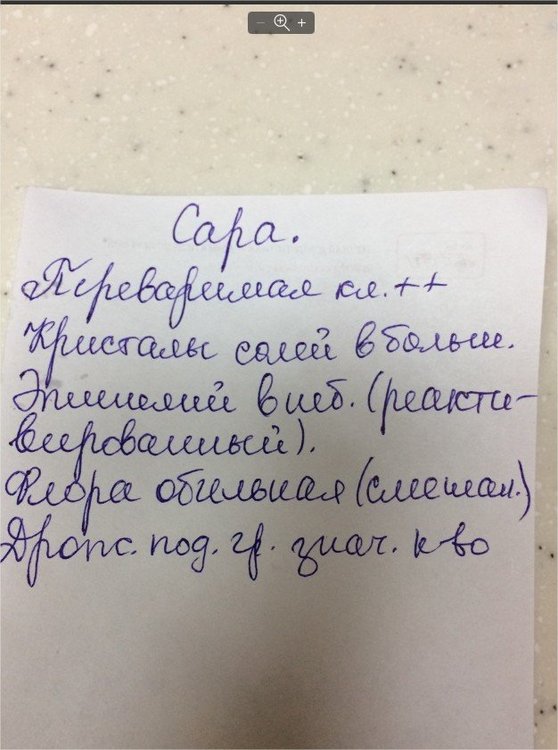 Сара.
Переваримая кл. ++
Кристалы солей в больш.
Эпителий в неб. (реакти-
вированный).
Флора обильная (смешан.)
Дропс. под. гр. знач. к-во